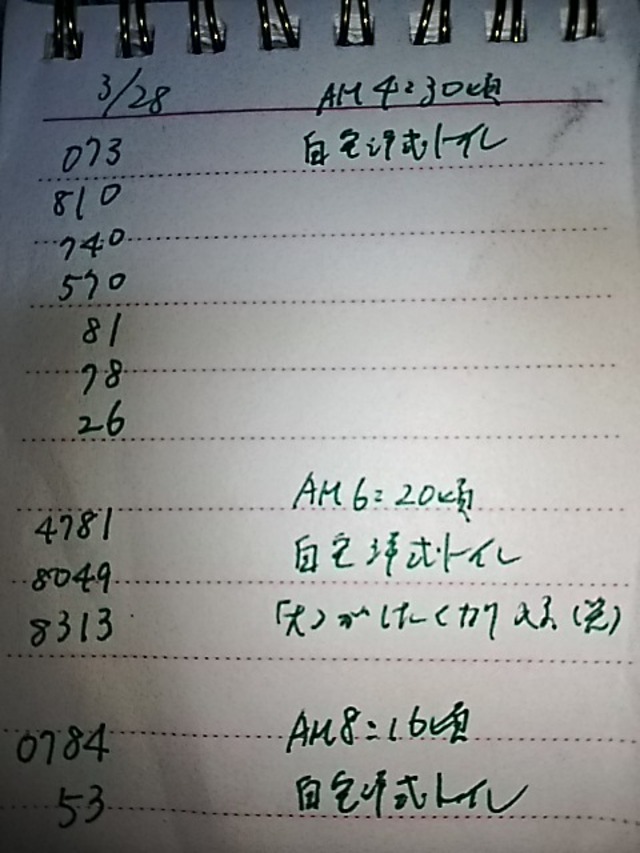 3/28 AM4:30頃
073 自宅洋式トイレ
810
740
570
81
78
26
AM6:20頃
4781
自宅洋式トイレ
8049
8313 「大」がしたく
0784 AM8:16頃
53 自宅洋式トイレ